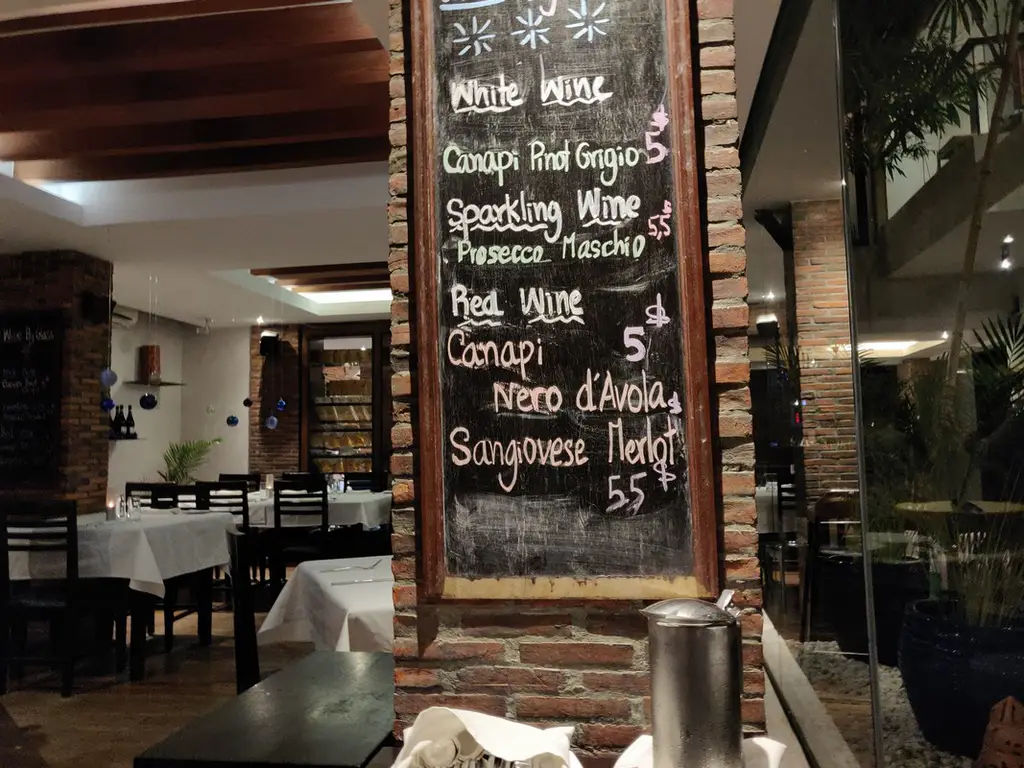 White Wine
$
Canapi Pinot Grigio 5
Sparkling Wine $
Prosecco Maschio 5,5
Red Wine
$
Canapi 5
Nero d'Avola $
Sangiovese Merlot
5,5 $